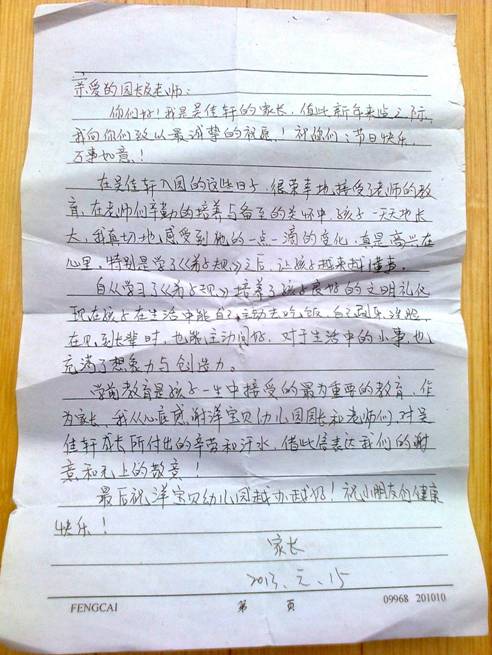 亲爱的园长及老师:
你们好!我是吴佳轩的家长,值此新年来临之际,
我向你们致以最诚挚的祝愿!祝您们:节日快乐,
万事如意!
在吴佳轩入园的这些日子,很荣幸地接受了老师的教
育,在老师们辛勤的培养与备至的关怀中,孩子一天天地长
大,我真切地感受到他的一点一滴的变化,真是高兴在
心里,特别是学了《弟子规》之后,让孩子越来越懂事。
自从学习了《弟子规》培养了孩子良好的文明礼仪
现在孩子在生活中能自己主动去吃饭,自己刷牙、洗脸,
在见到长辈时,也能主动问好,对于生活中的小事,也
充满了想象力与创造力。
学前教育是孩子一生中接受的最为重要的教育,作
为家长,我从心底感谢洋宝贝幼儿园园长和老师们,对吴
佳轩成长所付出的辛劳和汗水,借此信表达我们的谢
意和无上的敬意!
最后祝洋宝贝幼儿园越办越好!祝小朋友们健康
快乐!
家长
2013、元、15
FENGCAI 第 页 09968 201010